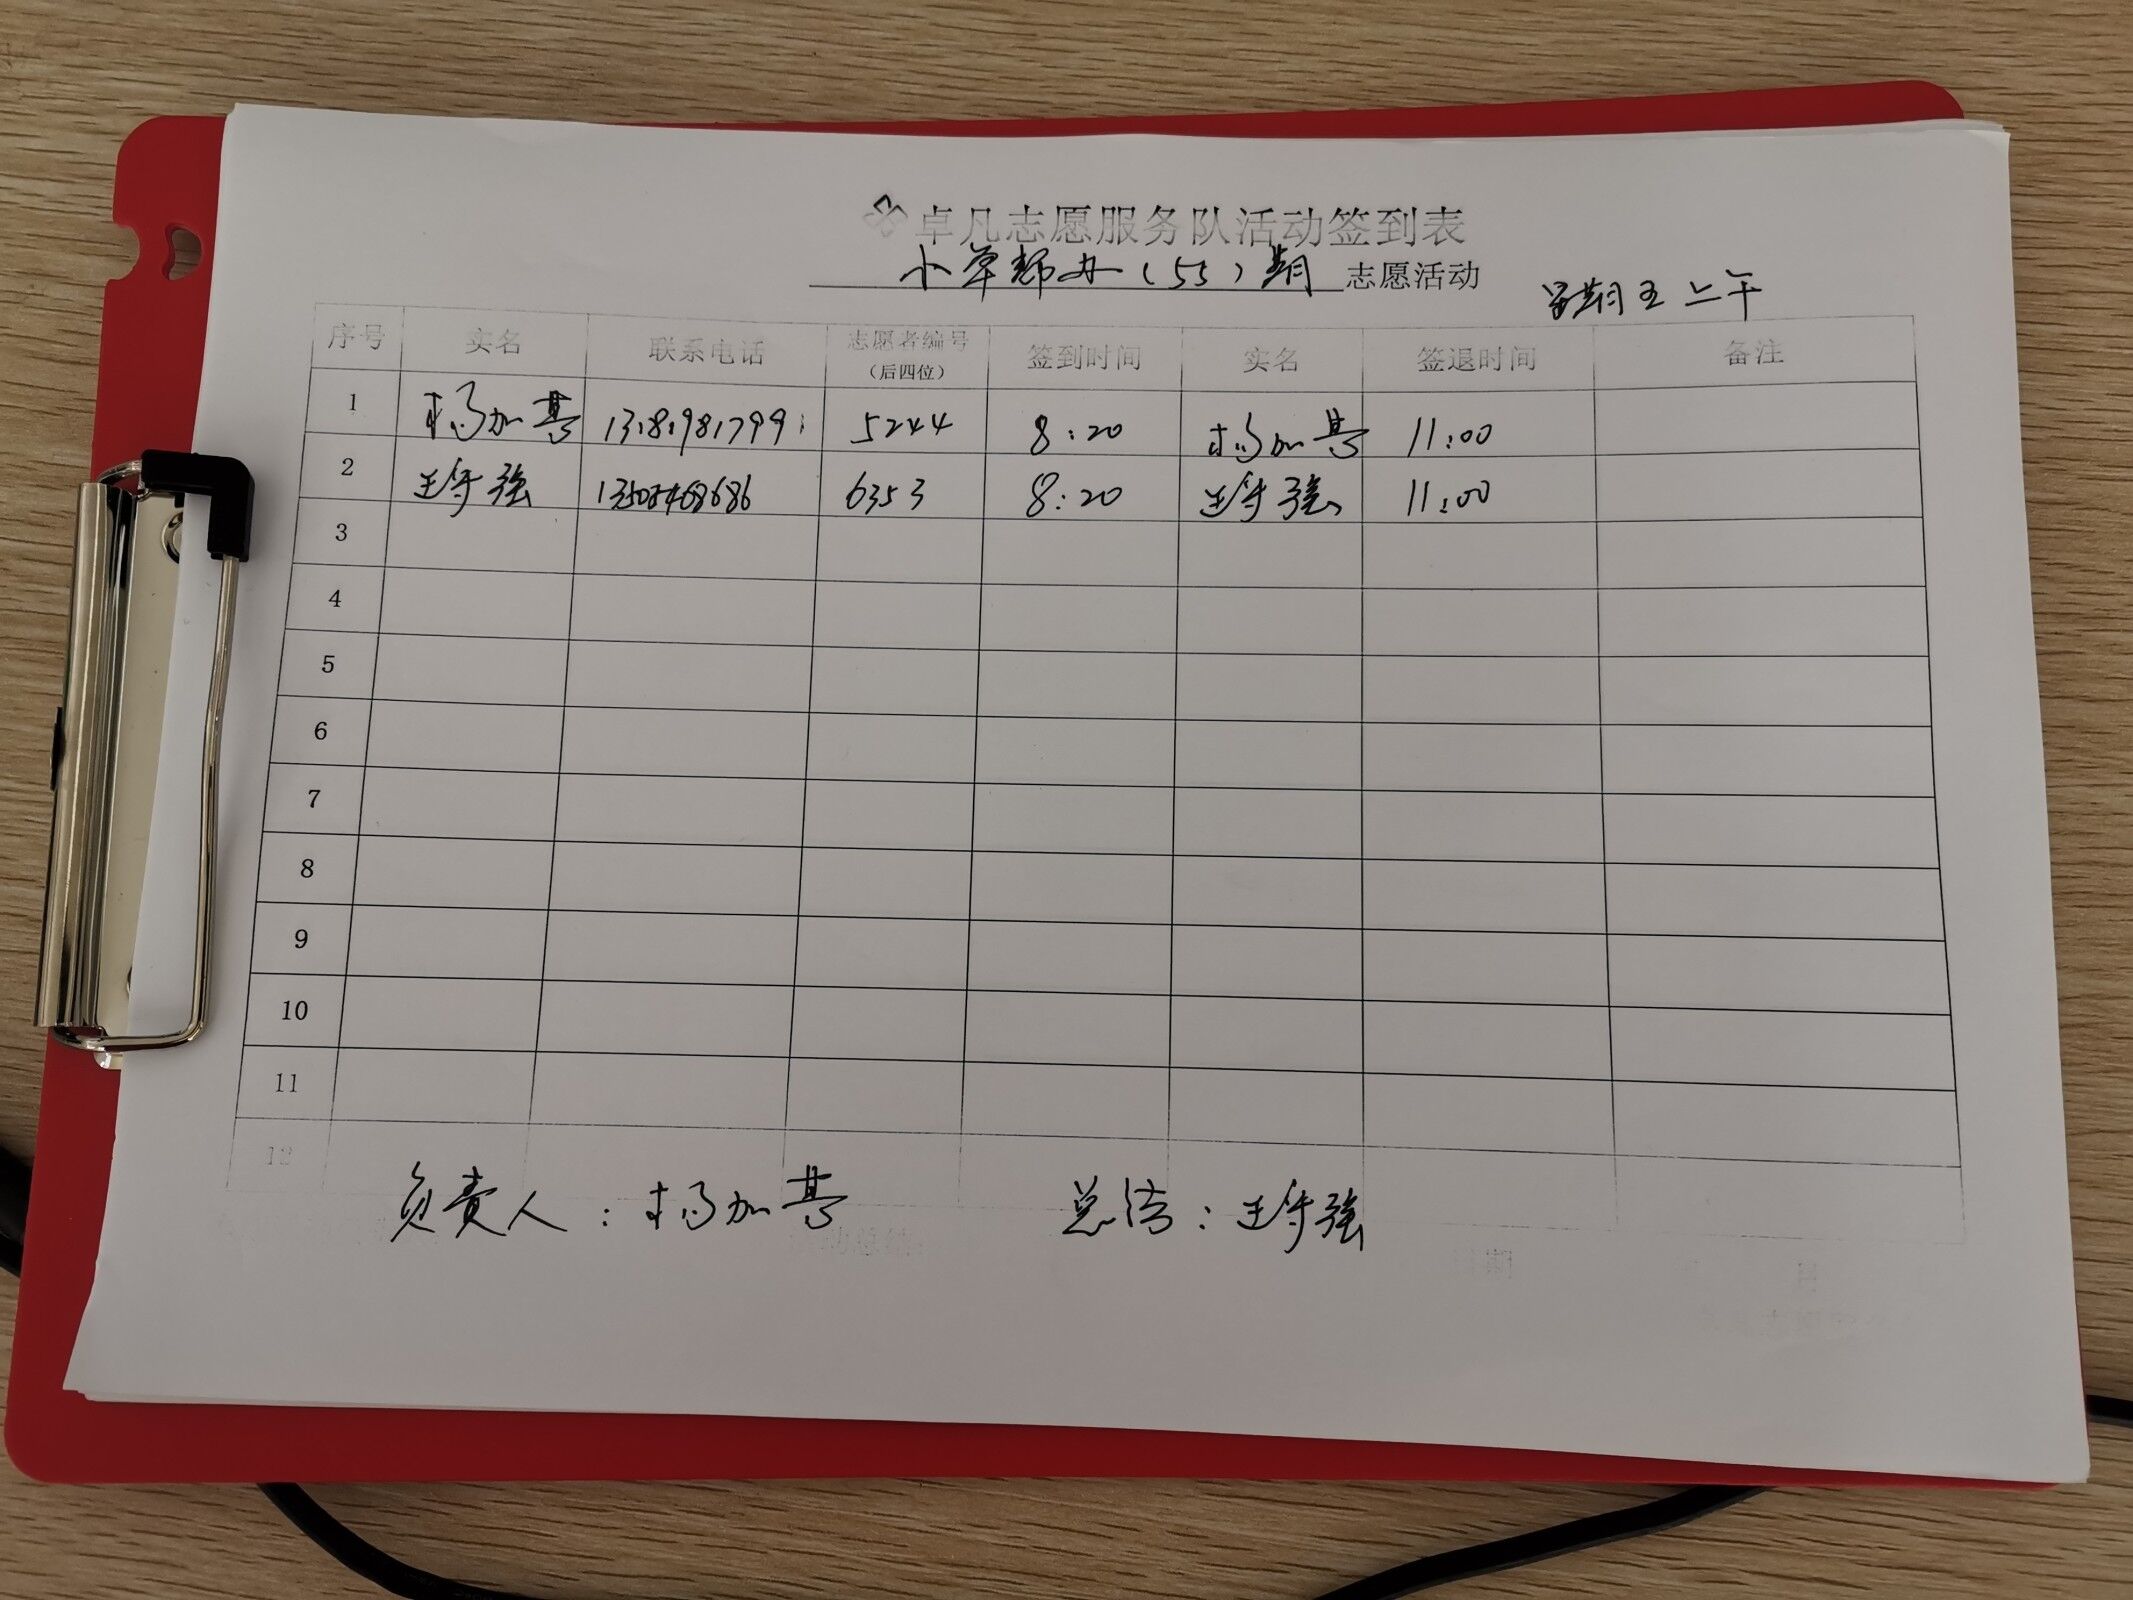 卓凡志愿服务队活动签到表
小草帮办（55）期志愿活动
星期五上午
序号 实名 联系电话 志愿者编号（后四位） 签到时间 实名 签退时间 备注
1 杨加基 5244 8:20 杨加基 11:00
2 王守强 13508468686 6353 8:20 王守强 11:00
3
4
5
6
7
8
9
10
11
12
负责人：杨加基 总结：王守强
期
日